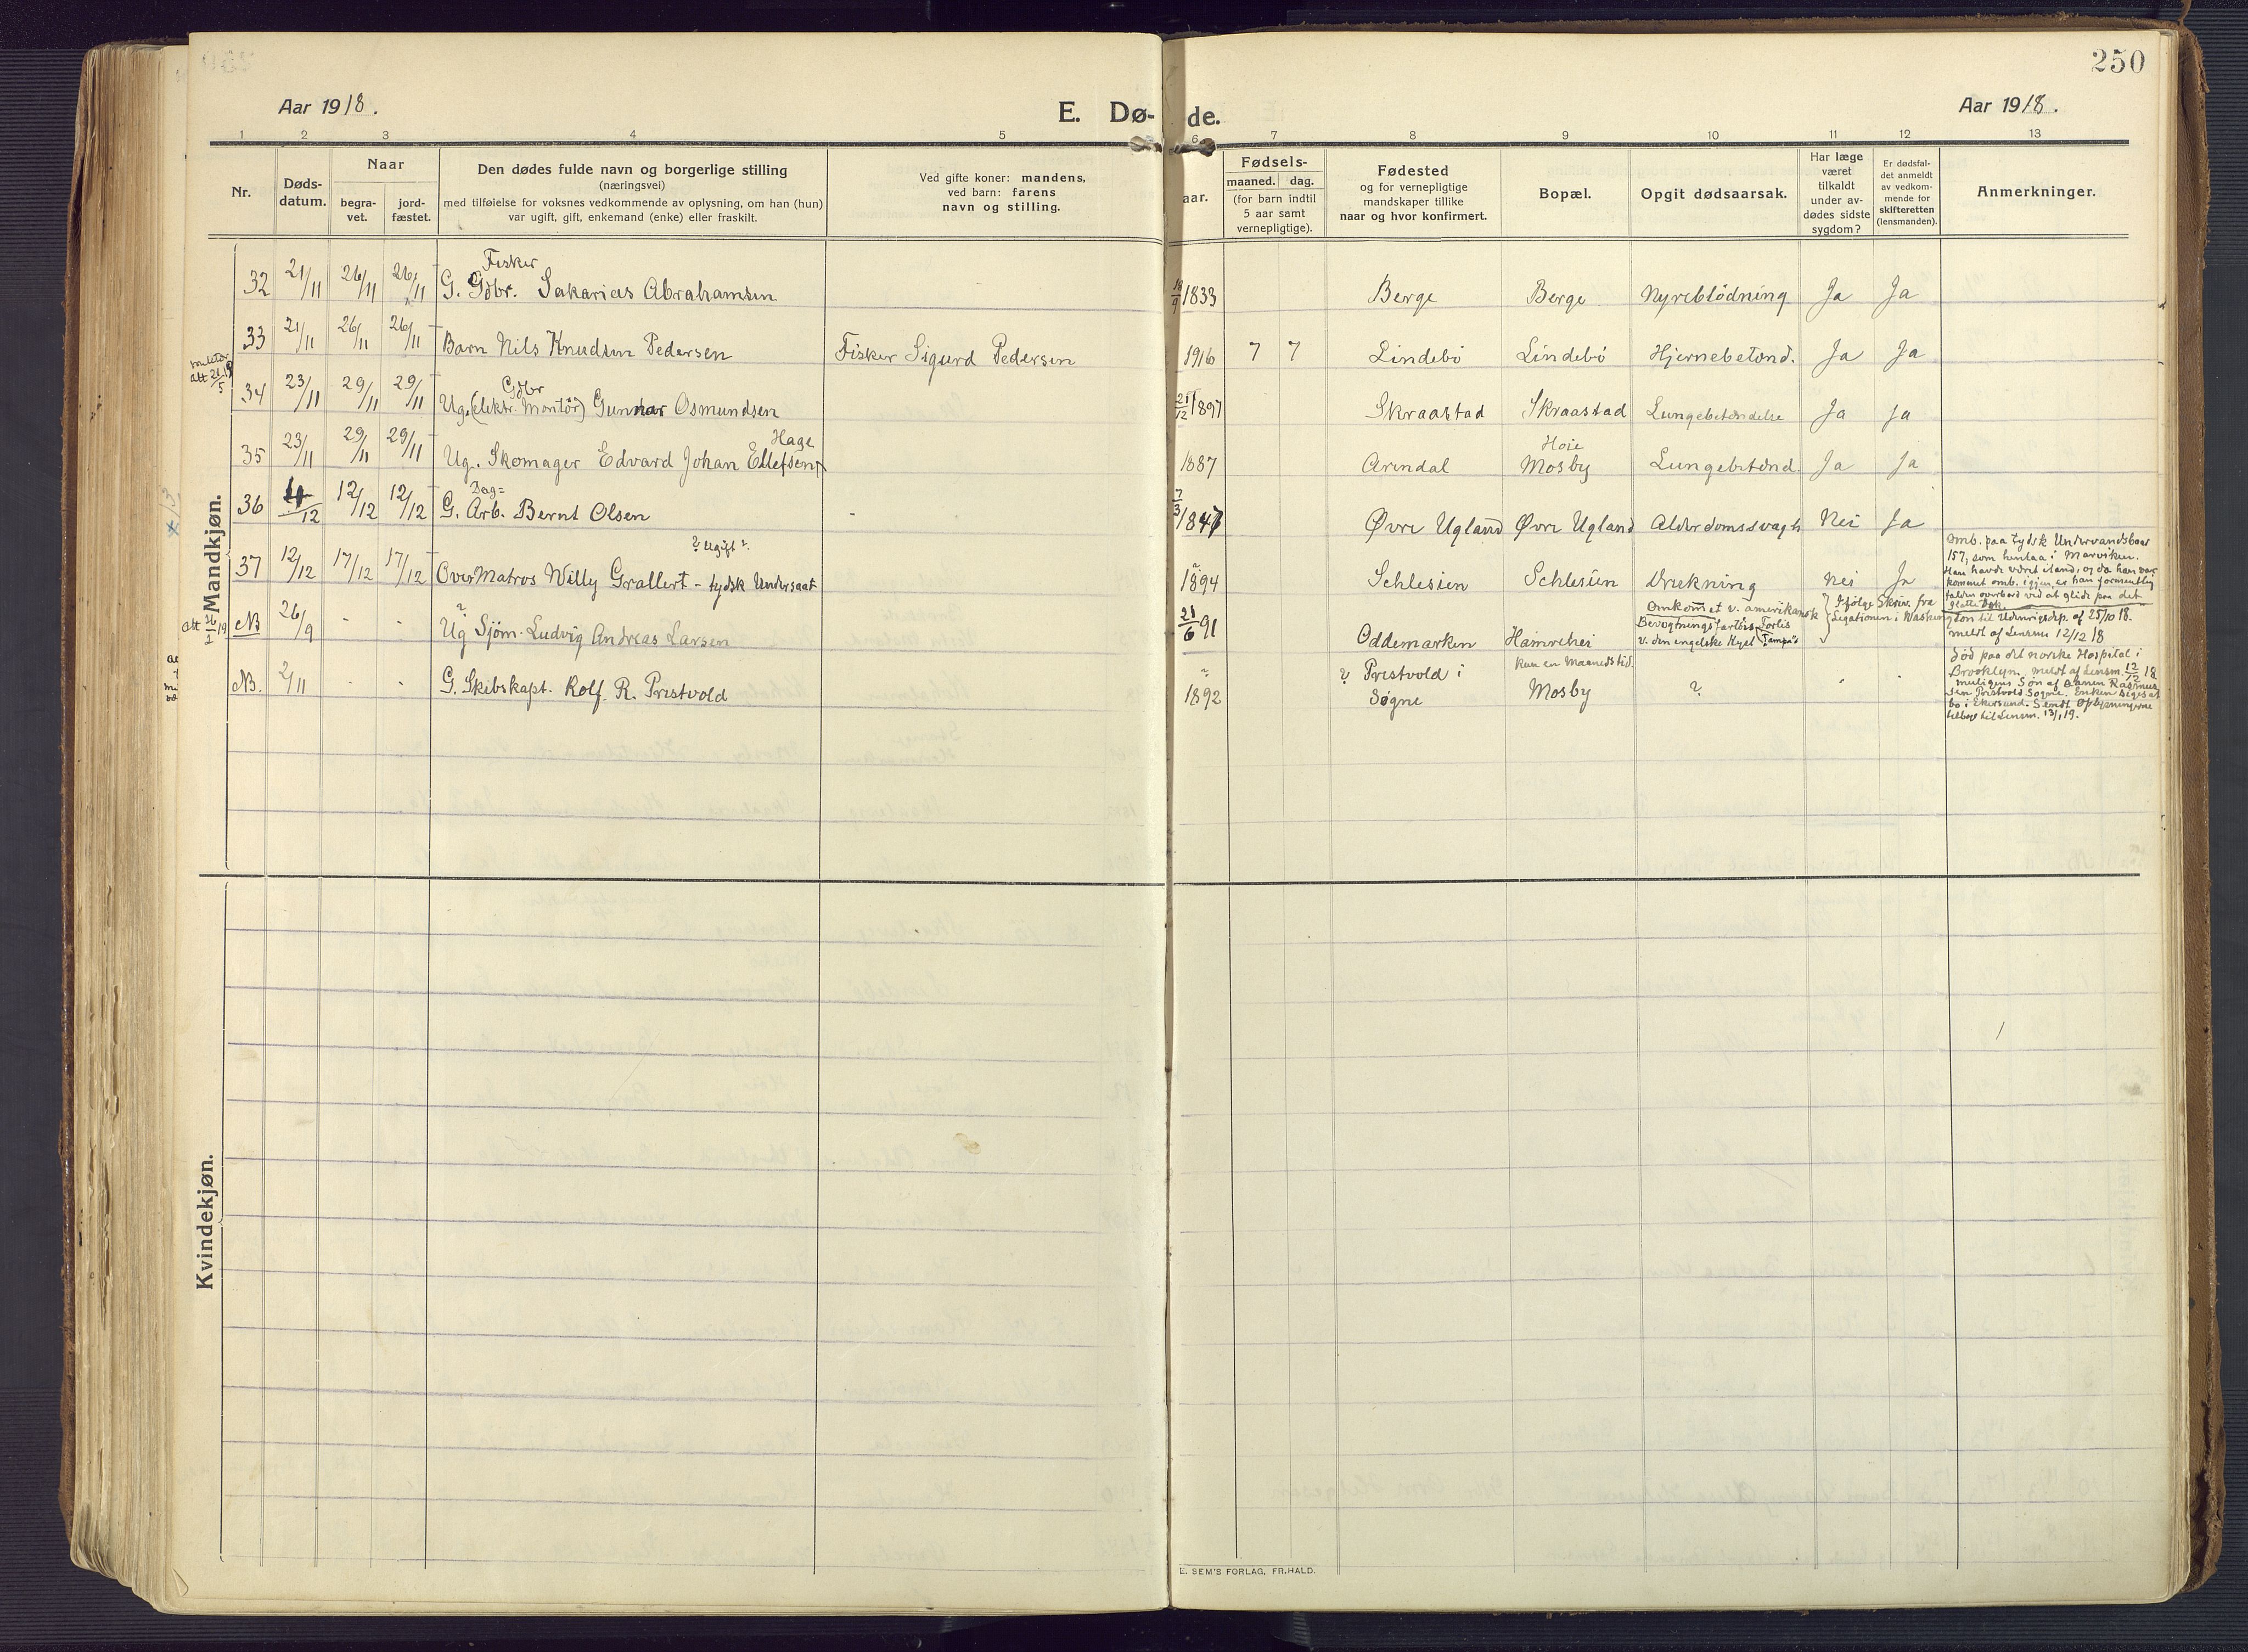 250
Aar 1918.
E. Dø-
de.
Aar 1918.
1 2 3 4 5 6 7 8 9 10 11 12 13
Nr.
Døds-
datum.
Naar
begra-
vet.
jord-
fæstet.
Den dødes fulde navn og borgerlige stilling
(næringsvei)
med tilføielse for voksnes vedkommende av oplysning, om han (hun)
var ugift, gift, enkemand (enke) eller fraskilt.
Ved gifte koner: mandens,
ved barn: farens
navn og stilling.
aar.
Fødsels-
maaned. dag.
(for barn indtil
5 aar samt
vernepligtige).
Fødested
og for vernepligtige
mandskaper tillike
naar og hvor konfirmert.
Bopæl.
Opgit dødsaarsak.
Har læge
været
tilkaldt
under av-
dødes sidste
sygdom?
Er dødsfal-
det anmeldt
av vedkom-
mende for
skifteretten
(lensmanden).
Anmerkninger.
Mandkjøn.
Fisker
32 21/11 26/11 26/11 G. Gdbr. Sakarias Abrahamsen 18/9 1833 Berge Berge Nyreblödning Ja Ja
33 21/11 26/11 26/11 Barn Nils Knudsen Pedersen Fisker Sigurd Pedersen 1916 7 7 Lindebö Lindebö Hjernebetænd. Ja Ja
Att 21/5 19
Gdbr
34 23/11 29/11 29/11 Ug. (elektr. Montör) Gunnar Osmundsen 21/12 1897 Skraastad Skraastad Lungebetændelse Ja Ja
Hage Høie
35 23/11 29/11 29/11 Ug. Skomager Edvard Johan Ellefsen 1887 Arendal Mosby Lungebetænd. Ja Ja
Dag=
36 4/12 12/12 12/12 G. Arb. Bernt Olsen 7/3 1847 Øvre Ugland Øvre Ugland Alderdomssvagh Nei Ja
? Ugift ?
37 12/12 17/12 17/12 OverMatros Willy Grallert - tydsk Undersaat ? 1894 Schlesien Schlesien Drukning Nei Ja
Omb. paa tydsk Undervandsbaad
157, som henlaa i Marviken.
Han havde været iland, og da han var
kommet omb. igjen, er han formentlig
falden overbord ved at glide paa det
glatte Dæk.
Att 26/2 19
NB 26/9 - - Ug ? Sjöm. Ludvig Andreas Larsen 21/6 91 Oddemarken Hamrehei
Omkommet v. amerikansk
Bevogtningsfartöis Forlis
v. den engelske Kyst "Tampa"
Ifølge Skriv. fra
Legationen i Washington til Udenrigsdep. af 25/10 18.
meldt af Lensm 12/12 18
NB. 2/11 - - G. Skibskapt. Rolf. R. Prestvold ? 1892 ? Prestvold i
Søgne
kun en Maanedstid.
Mosby ?
Död paa det norske Hospital i
Brooklyn. meldt af Lensm. 12/12 18
muligens Søn af Aanen Rasmus
sen Prestvold Søgne. Enken siges at
bo i Ekersund. Sendt Oplysningerne
tilbage til Lensm. 13/1 19.
Kvindekjøn.
E. SEM'S FORLAG, FR.HALD.